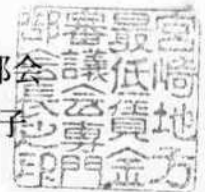 部会
子
宮崎地方
最低賃金
審議会専門
部会長之印